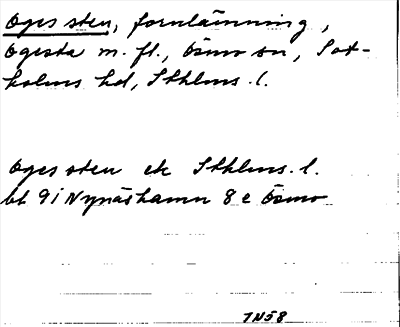 Oges sten, fornlämning,
Ogesta m. fl., Ösmo sn, Sot-
holms hd, Sthlms. l.
Oges sten ek Sthlms. l.
bl 9i Nynäshamn 8 e Ösmo
IN58